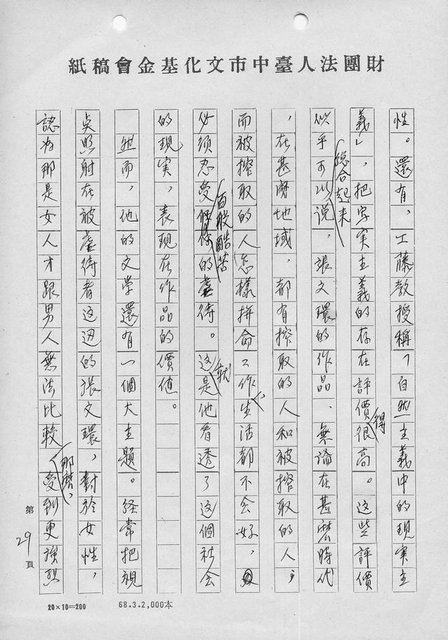 財團法人臺中市文化基金會稿紙
性。還有，工藤教授稱「自然主義中的現實主
義」，把字實主義的存在評價得很高。這些評價
綜合起來
似乎可以說，張文環的作品，無論在甚麼時代
，在甚麼地域，都有搾取的人和被搾取的人，
而被搾取的人怎樣拼命工作，生活都不會好，
必須忍受百般酷苦的虐待。這就是他看透了這個社會
的現實，表現在作品的價值。
然而，他的文學還有一個大主題。經常把視
點照射在被虐待者這邊的張文環，對於女性，
認為那是女人才跟男人無法比較那麼，受到更強烈
第29頁
20×10=200
68.3.2,000本